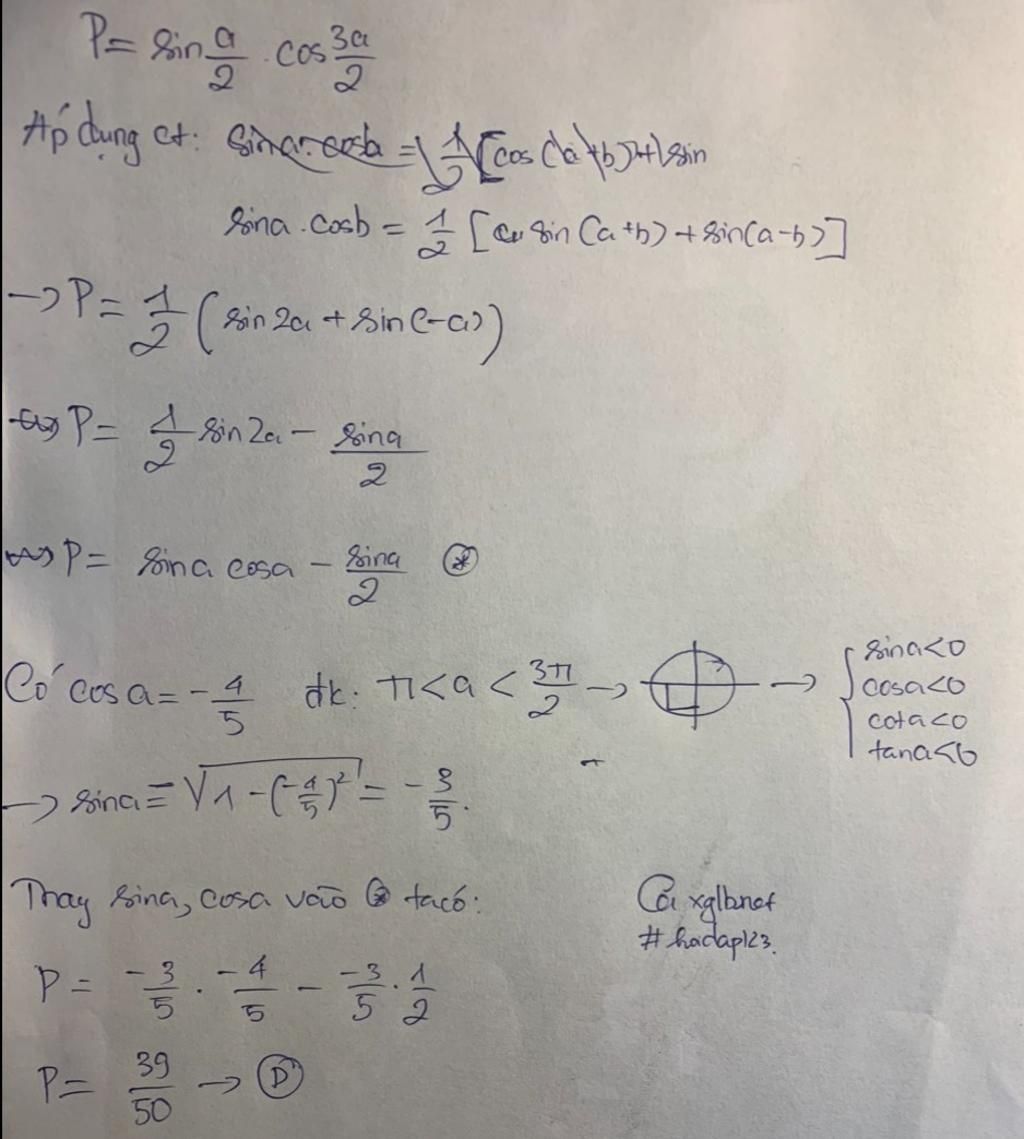 P = sin a/2 . cos 3a/2
Áp dụng ct: sina.cosb = 1/2 [cos(a+b)+sin
sina.cosb = 1/2 [sin(a+b)+sin(a-b)]
-> P = 1/2 (sin2a + sin(-a))
<=> P = 1/2 sin2a - sina/2
<=> P = sina cosa - sina/2 (*)
Có cosa = -4/5 đk: π<a<3π/2 -> -> { sina<0
cosa<0
cota<0
tana<0
-> sina = -√1-(-4/5)² = -3/5.
Thay sina, cosa vào (*) ta có:
#hadap123.
P = -3/5 . -4/5 - -3/5 . 1/2
P = 39/50 -> (D)